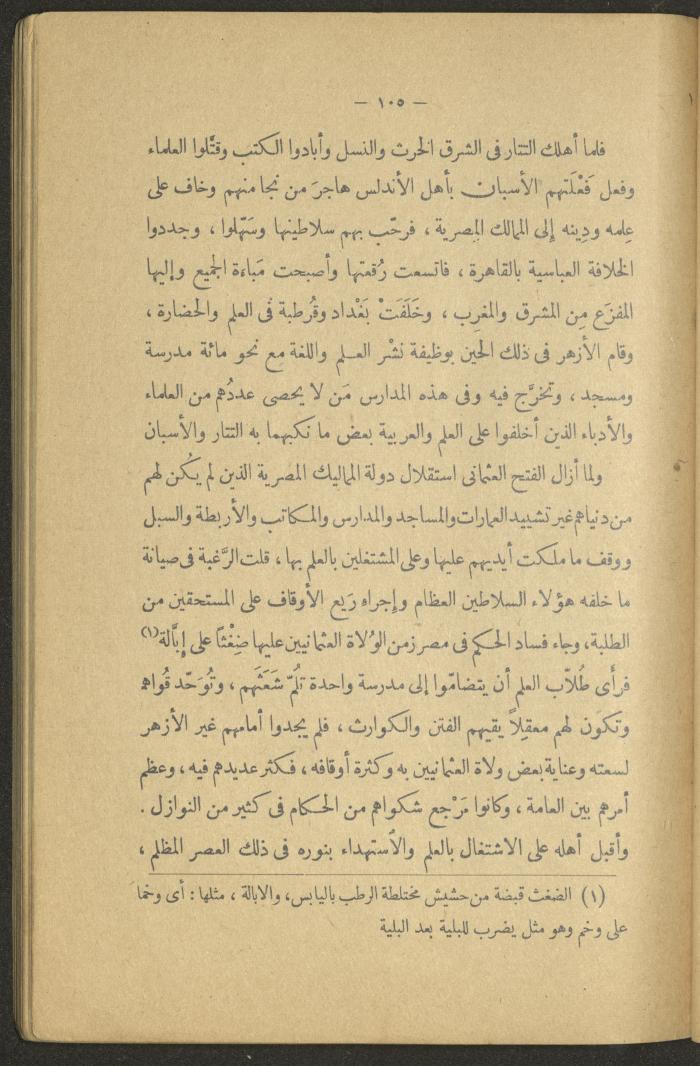 — ١٠٥ —
فلما أهلك التتار فى الشرق الحرث والنسل وأبادوا الكتب وقتَّلوا العلماء
وفعل فَعْلَتهم الأسبان بأهل الأندلس هاجرَ من نجا منهم وخاف على
عِلمه ودِينه إلى الممالك المِصرية ، فرحّب بهم سلاطينها وسَهّلوا ، وجددوا
الخلافة العباسية بالقاهرة ، فاتسعت رُقعتها وأصبحت مَباءَة الجميع وإليها
المفزَع مِن المشرق والمغرِب ، وخَلَفَتْ بَغْداد وقُرطبة فى العلم والحضارة ،
وقام الأزهر فى ذلك الحين بوظيفة نشْر العلم واللغة مع نحو مائة مدرسة
ومسجد ، وتخرَّج فيه وفى هذه المدارس مَن لا يحصى عددُهم من العلماء
والأدباء الذين أخلفوا على العلم والعربية بعض ما نكبهما به التتار والأسبان
ولما أزال الفتح العثمانى استقلال دولة المماليك المصرية الذين لم يكُن لهم
من دنياهم غير تشييد العمارات والمساجد والمدارس والمكاتب والأربطة والسبل
ووقف ما ملكت أيديهم عليها وعلى المشتغلين بالعلم بها ، قلت الرَّغبة فى صيانة
ما خلفه هؤلاء السلاطين العظام وإجراء رَيع الأوقاف على المستحقين من
الطلبة، وجاء فساد الحكم فى مصر زمن الوُلاة العثمانيين عليها ضِغْثاً على إبَّالة(١)
فرأى طُلاّب العلم أن يتضامّوا إلى مدرسة واحدة تلُمّ شَعَثَهم ، وتُوَحّد قُواهم
وتكون لهم معقِلاً يقيهم الفتن والكوارث ، فلم يجدوا أمامهم غير الأزهر
لسعته وعناية بعض ولاة العثمانيين به وكثرة أوقافه ، فكثر عديدهم فيه ، وعظم
أمرهم بين العامة ، وكانوا مَرْجع شكواهم من الحكام فى كثير من النوازل .
وأقبل أهله على الاشتغال بالعلم والاستهداء بنوره فى ذلك العصر المظلم ،
(١) الضغث قبضة من حشيش مختلطة الرطب باليابس، والابالة ، مثلها : أى وخما
على وخم وهو مثل يضرب للبلية بعد البلية